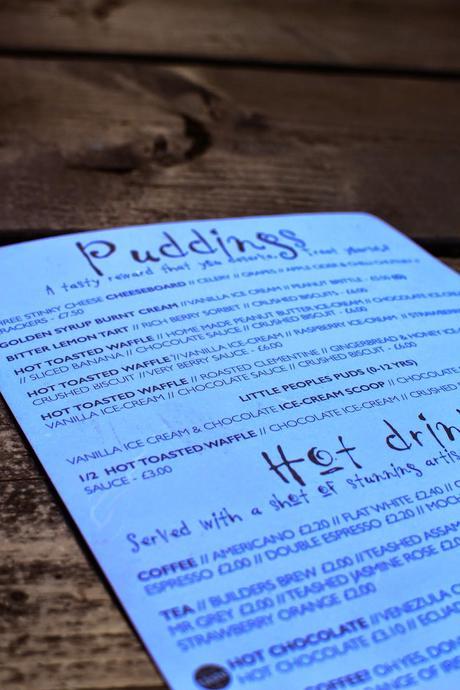 Puddings
A tasty reward that you deserve, treat yourself
THREE STINKY CHEESE CHEESEBOARD // CELERY // GRAPES // APPLE CIDER & CHILLI CHUTNEY //
CRACKERS - £7.50
GOLDEN SYRUP BURNT CREAM // VANILLA ICE-CREAM // PEANUT BRITTLE -
BITTER LEMON TART // RICH BERRY SORBET // CRUSHED BISCUITS -
HOT TOASTED WAFFLE // HOME MADE PEANUT BUTTER ICE-CREAM // CHOCOLATE
// SLICED BANANA // CHOCOLATE SAUCE // CRUSHED BISCUIT - £6.00
HOT TOASTED WAFFLE // VANILLA ICE-CREAM // RASPBERRY ICE-CREAM //
CRUSHED BISCUIT // VERY BERRY SAUCE - £6.00
HOT TOASTED WAFFLE // ROASTED CLEMENTINE // GINGERBREAD & HONEY
VANILLA ICE-CREAM // CHOCOLATE SAUCE // CRUSHED BISCUIT - £6.00
LITTLE PEOPLES PUDS (0-12 YRS)
VANILLA ICE CREAM & CHOCOLATE ICE-CREAM SCOOP // CHOCOLATE
1/2 HOT TOASTED WAFFLE // CHOCOLATE ICE-CREAM // CRUSHED
SAUCE - £3.00
Hot drin
Served with a shot of stunning artis
COFFEE // AMERICANO £2.20 // FLAT WHITE £2.40 //
ESPRESSO £2.00 // DOUBLE ESPRESSO £2.20 // MOCH
TEA // BUILDERS BREW £2.00 // TEASHED ASSAM
MR GREY £2.00 // TEASHED JASMINE ROSE £2.0
STRAWBERRY ORANGE £2.00
HOT CHOCOLATE // VENEZULA
HOT CHOCOLATE £3.10 // ECUAD
COFFEE? OH YES, DO